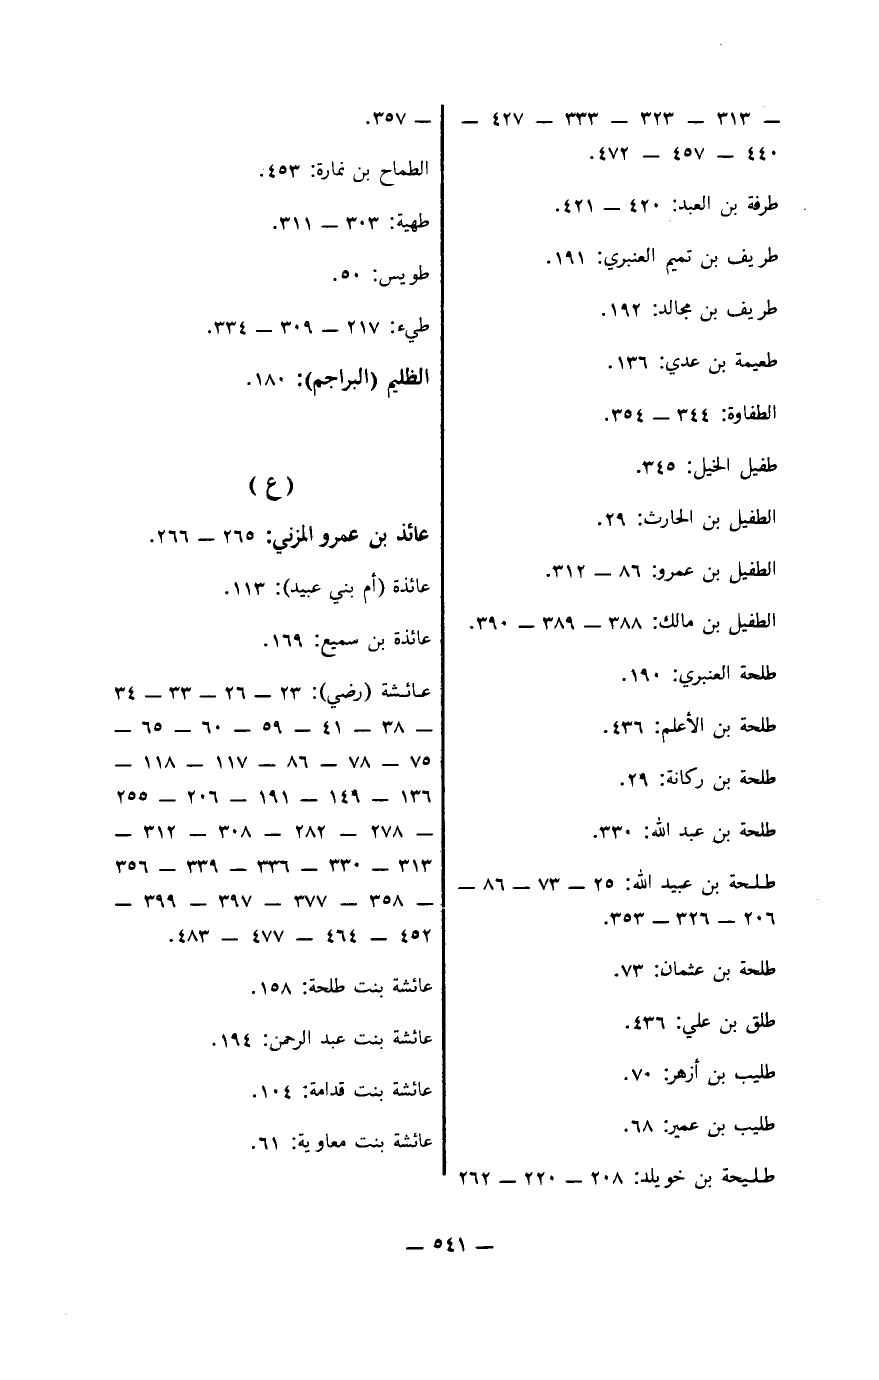 — ٣١٣ — ٣٢٣ — ٣٣٣ — ٤٢٧ —
٤٤٠ — ٤٥٧ — ٤٧٢.
طرفة بن العبد: ٤٢٠ — ٤٢١.
طريف بن تميم العنبري: ١٩١.
طريف بن مجالد: ١٩٢.
طعيمة بن عدي: ١٣٦.
الطفاوة: ٣٤٤ — ٣٥٤.
طفيل الخيل: ٣٤٥.
الطفيل بن الحارث: ٢٩.
الطفيل بن عمرو: ٨٦ — ٣١٢.
الطفيل بن مالك: ٣٨٨ — ٣٨٩ — ٣٩٠.
طلحة العنبري: ١٩٠.
طلحة بن الأعلم: ٤٣٦.
طلحة بن ركانة: ٢٩.
طلحة بن عبد الله: ٣٣٠.
طلحة بن عبيد الله: ٢٥ — ٧٣ — ٨٦ —
٢٠٦ — ٣٢٦ — ٣٥٣.
طلحة بن عثمان: ٧٣.
طلق بن علي: ٤٣٦.
طليب بن أزهر: ٧٠.
طليب بن عمير: ٦٨.
طليحة بن خويلد: ٢٠٨ — ٢٢٠ — ٢٦٢
— ٣٥٧.
الطماح بن نمارة: ٤٥٣.
طهية: ٣٠٣ — ٣١١.
طويس: ٥٠.
طيء: ٢١٧ — ٣٠٩ — ٣٣٤.
الظليم (البراجم): ١٨٠.
(ع)
عائذ بن عمرو المزني: ٢٦٥ — ٢٦٦.
عائذة (أم بني عبيد): ١١٣.
عائذة بن سميع: ١٦٩.
عائشة (رضي): ٢٣ — ٢٦ — ٣٣ — ٣٤
— ٣٨ — ٤١ — ٥٩ — ٦٠ — ٦٥ —
٧٥ — ٧٨ — ٨٦ — ١١٧ — ١١٨ —
١٣٦ — ١٤٩ — ١٩١ — ٢٠٦ — ٢٥٥
— ٢٧٨ — ٢٨٢ — ٣٠٨ — ٣١٢ —
٣١٣ — ٣٣٠ — ٣٣٦ — ٣٣٩ — ٣٥٦
— ٣٥٨ — ٣٧٧ — ٣٩٧ — ٣٩٩ —
٤٥٢ — ٤٦٤ — ٤٧٧ — ٤٨٣.
عائشة بنت طلحة: ١٥٨.
عائشة بنت عبد الرحمن: ١٩٤.
عائشة بنت قدامة: ١٠٤.
عائشة بنت معاوية: ٦١.
— ٥٤١ —